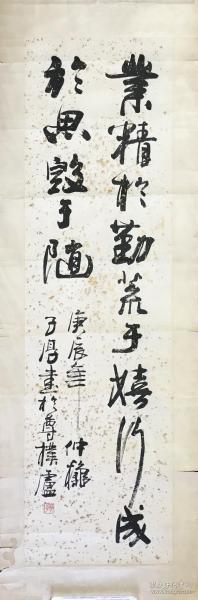 業精於勤荒于嬉行成
於思毀于随
庚辰年仲龝
子厚書於魯樸盧